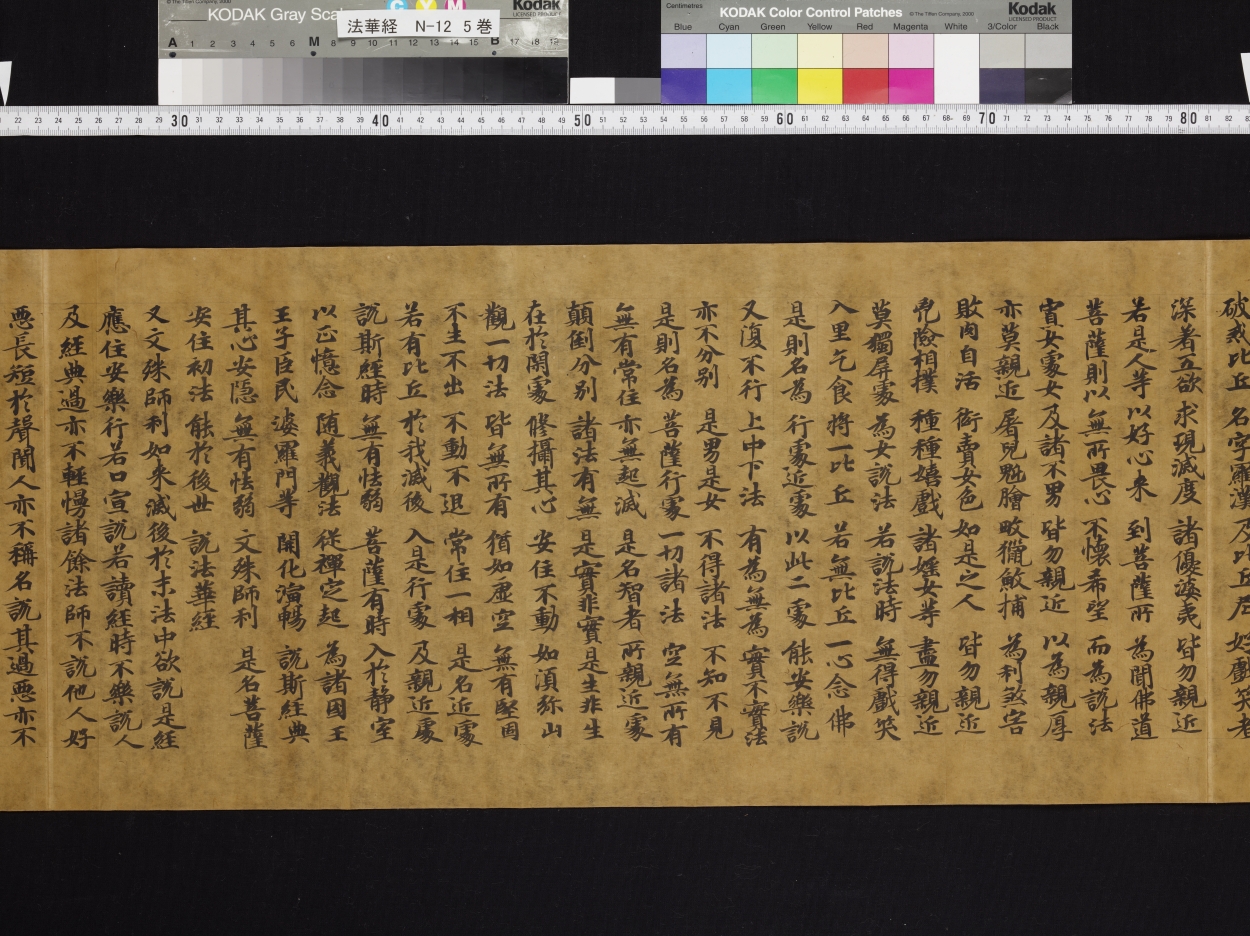 KODAK Gray Scale
© The Tiffen Company, 2000
Kodak
LICENSED PRODUCT
C Y M
法華経 N-12 5巻
A 1 2 3 4 5 6 M 8 9 10 11 12 13 14 15 B 17 18 19
Centimetres
KODAK Color Control Patches
© The Tiffen Company, 2000
Kodak
LICENSED PRODUCT
Blue Cyan Green Yellow Red Magenta White 3/Color Black
22 23 24 25 26 27 28 29 30 31 32 33 34 35 36 37 38 39 40 41 42 43 44 45 46 47 48 49 50 51 52 53 54 55 56 57 58 59 60 61 62 63 64 65 66 67 68 69 70 71 72 73 74 75 76 77 78 79 80 81 82
破戒比丘 名字羅漢 及比丘尼 好戲笑者
深著五欲 求現滅度 諸優婆夷 皆勿親近
若是人等 以好心来 到菩薩所 為聞佛道
菩薩則以 無所畏心 不懐希望 而為説法
寡女處女 及諸不男 皆勿親近 以為親厚
亦莫親近 屠兒魁膾 畋獵魰捕 為利煞害
販肉自活 衒賣女色 如是之人 皆勿親近
兇險相撲 種種嬉戲 諸婬女等 盡勿親近
莫獨屏處 為女説法 若説法時 無得戲笑
入里乞食 將一比丘 若無比丘 一心念佛
是則名為 行處近處 以此二處 能安樂説
又復不行 上中下法 有為無為 實不實法
亦不分別 是男是女 不得諸法 不知不見
是則名為 菩薩行處 一切諸法 空無所有
無有常住 亦無起滅 是名智者 所親近處
顛倒分別 諸法有無 是實非實 是生非生
在於閑處 修攝其心 安住不動 如湏弥山
觀一切法 皆無所有 猶如虚空 無有堅固
不生不出 不動不退 常住一相 是名近處
若有比丘 於我滅後 入是行處 及親近處
説斯經時 無有怯弱 菩薩有時 入於静室
以正憶念 随義觀法 従禪定起 為諸國王
王子臣民 婆羅門等 開化演暢 説斯經典
其心安隠 無有怯弱 文殊師利 是名菩薩
安住初法 能於後世 説法華經
又文殊師利如来滅後於末法中欲説是經
應住安樂行若口宣説若讀經時不樂説人
及經典過亦不輕慢諸餘法師不説他人好
惡長短於聲聞人亦不稱名説其過惡亦不